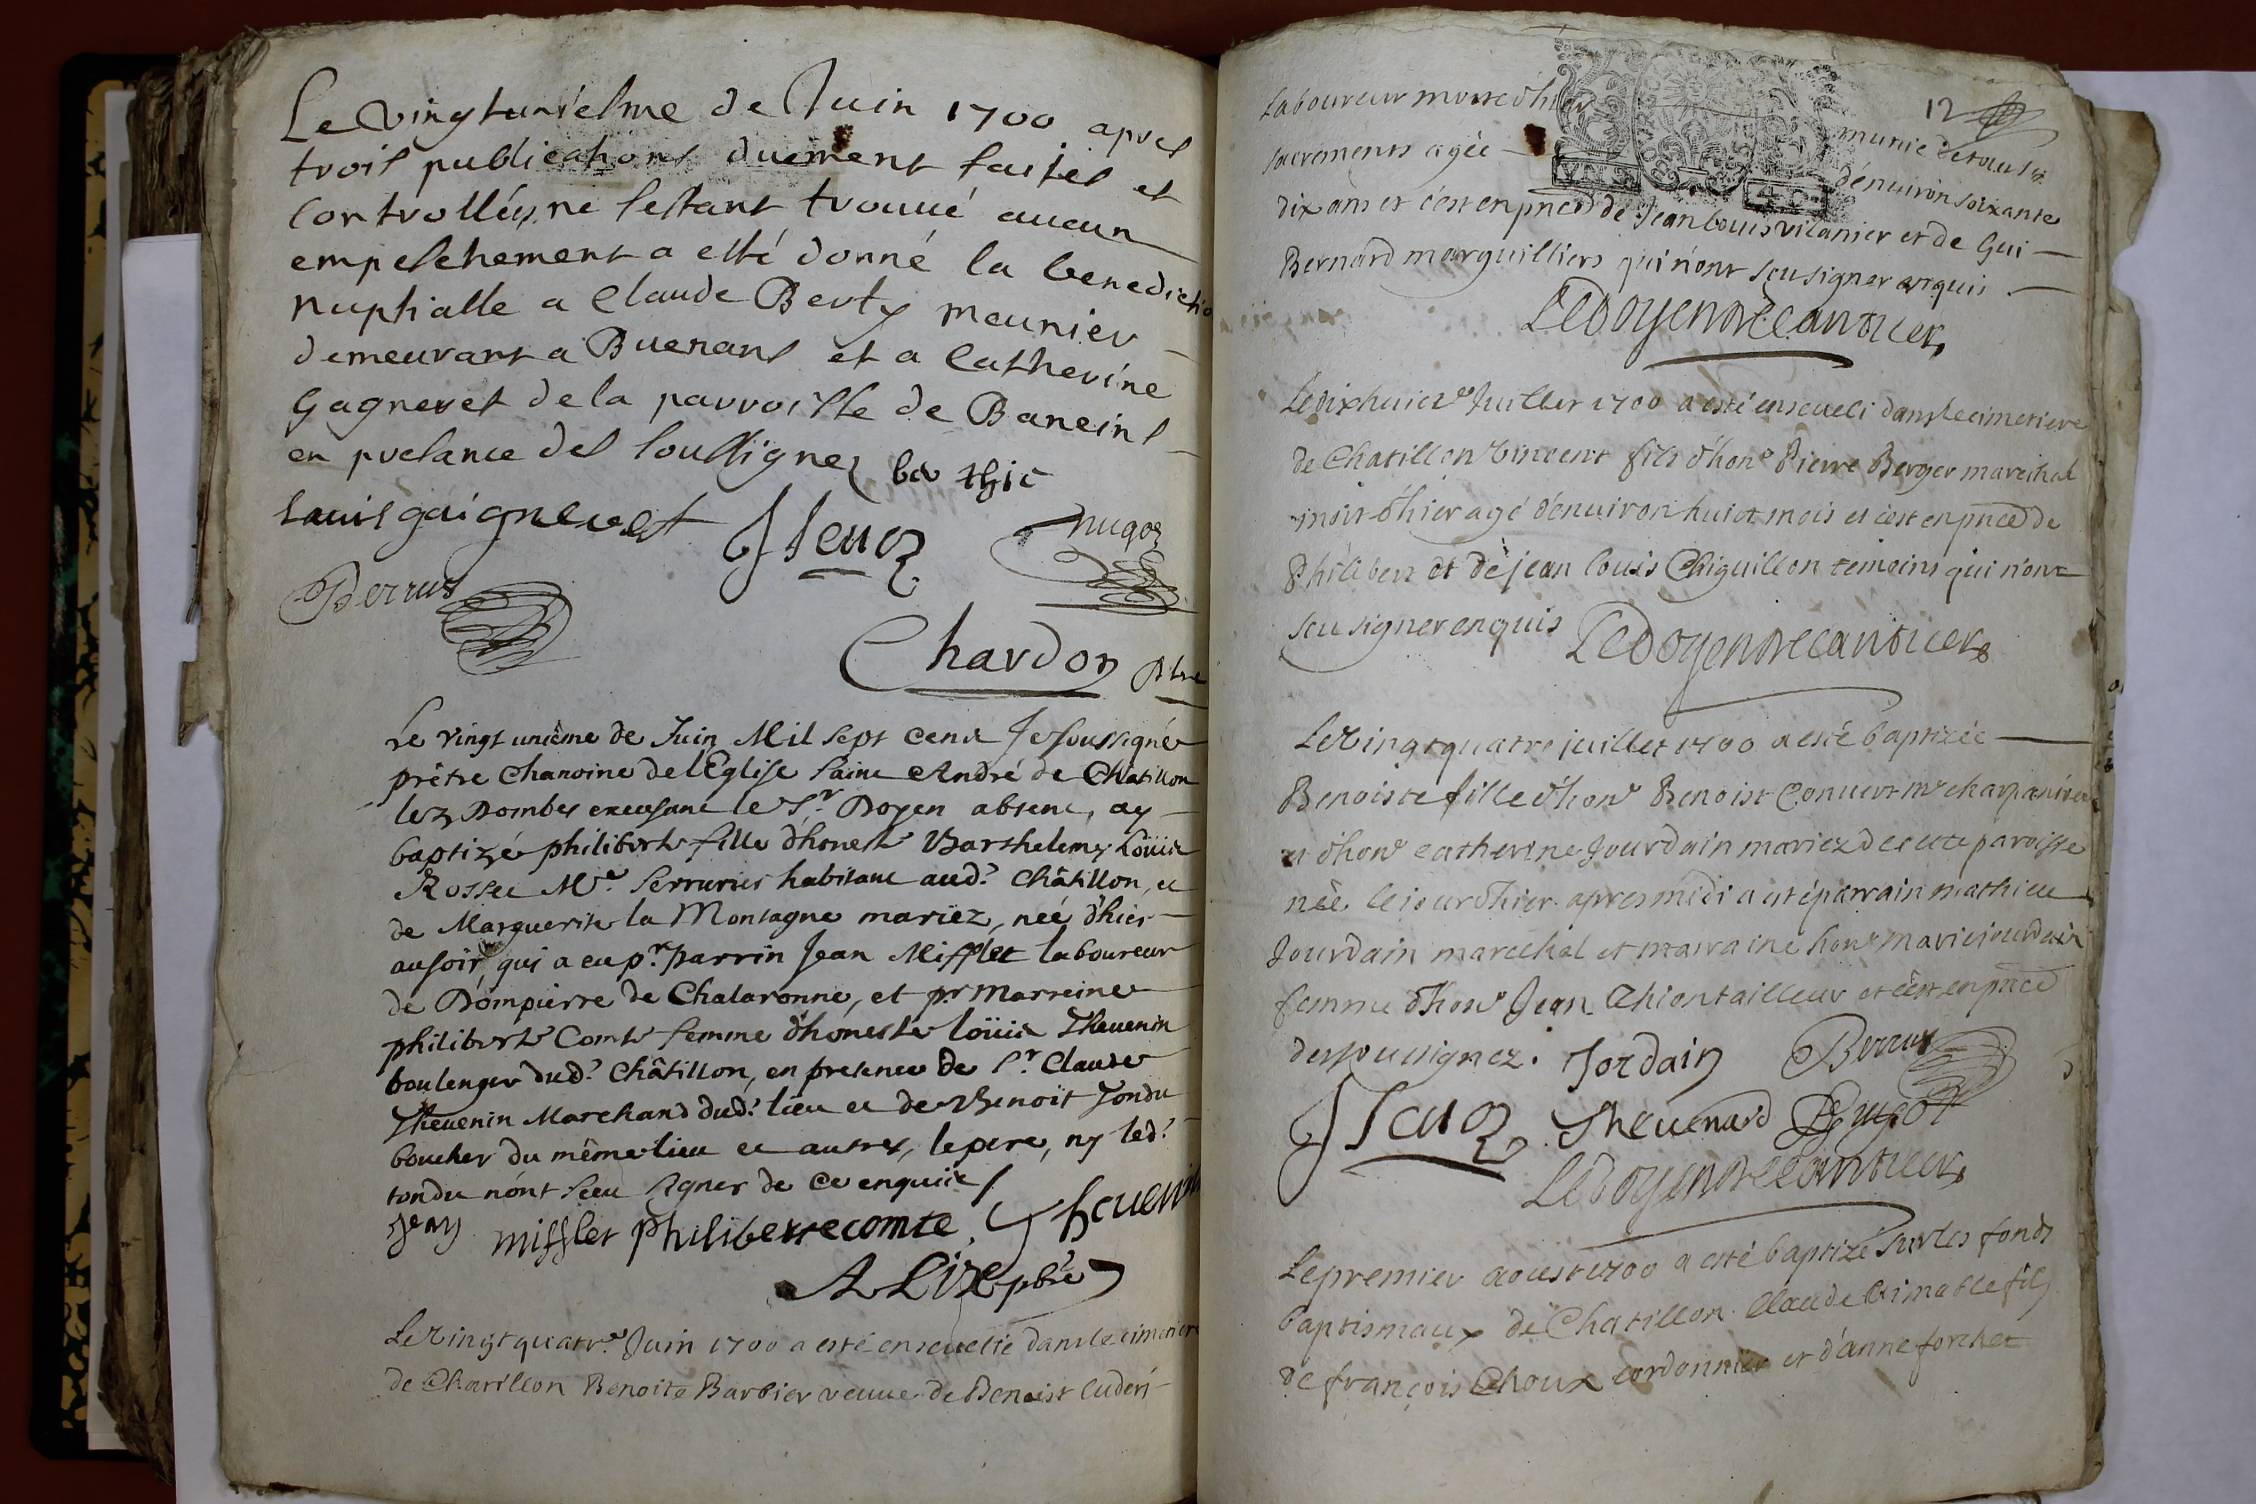 Le vingtuniesme de Juin 1700 apres
trois publications duement faites et
controllées, ne sestant trouué aucun
empeschement a esté donné la benedictio
nuptialle a Claude Berty meunier
demeurant a Buenans et a Catherine
gagneret de la parroisse de Baneins
en presance des soussignez
Louis gaigneret JSeuoz nugoz
Perrus
Chardon ptre
Le vingt unième de Juin Mil sept cent Je soussigné
prêtre Chanoine de l'Eglise Saint André de Châtillon
lez Dombes exersant le Sr. Doyen absent, ay
baptizé philiberte fille d'honeste Barthelemy Loüis
Rosset Me. Serrurier habitant aud.t Châtillon, et
de Marguerite la Montagne mariez, neé d'hier
au soir qui a eu pr. parrin Jean Mifflet laboureur
de Dompierre de Chalaronne, et pr Marreine
philiberte Comte femme d'honeste loüis Theuenin
boulenger dud.t Châtillon, en presence de Sr. Claude
Theuenin Marchand dud.t lieu et de Benoît Tondu
boucher du même lieu et autres, le pere, ny led.t
tondu n'ont sceu signer de ce enquis
Jean mifflet philiberte comte, Theuenin
A Lize pbre
Le Vingt quatre. Juin 1700 a esté enseuelie dans le cimetiere
de Chatillon Benoite Barbier veuue de Benoist Luderi
12
laboureur morte d'hier munie de tous les
sacrements agée d'enuiron soixante
dix ans et c'est en pnce de Jean louis vilanier et de Gui
Bernard marguilliers qui n'ont sceu signer enquis
Le Doyen Decanouer
Le dix huict.e Juillet 1700 a esté enseueli dans le cimetiere
de Chatillon Vincent fils d'hon.e Pierre Berger mareschal
mort d'hier agé d'enuiron huict mois et c'est en pnce de
Philibert et de jean louis Chiquillon temoins qui n'ont
sceu signer enquis Le Doyen Decanouer
Le Vingt quatre juillet 1700 a esté baptizée
Benoiste fille d'hon.e Benoist Conuert me charpantier
et d'hon.e catherine Jourdain mariez de cette paroisse
née le jour d'hier apres midi a esté parrain mathieu
Jourdain marechal et marraine hon.e marie jourdain
femme d'hon.e Jean Chion tailleur et c'est en pnce
des soussignez. Jordain Perrus
JSeuoz Theuenard Bugot
Le Doyen Decanouer
Le premier aoust 1700 a esté baptizé sur les fonds
baptismaux de Chatillon Claude Aimable fils
de françois Choux cordonnier et d'anne forchet